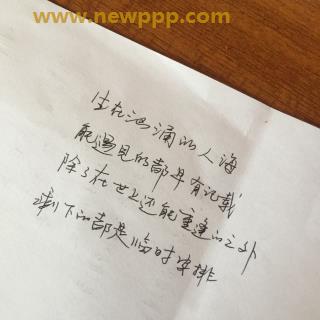 www.newppp.com
生在汹涌的人海
能遇见的都早有记载
除了在世上还能重逢的之外
剩下的都是临时安排